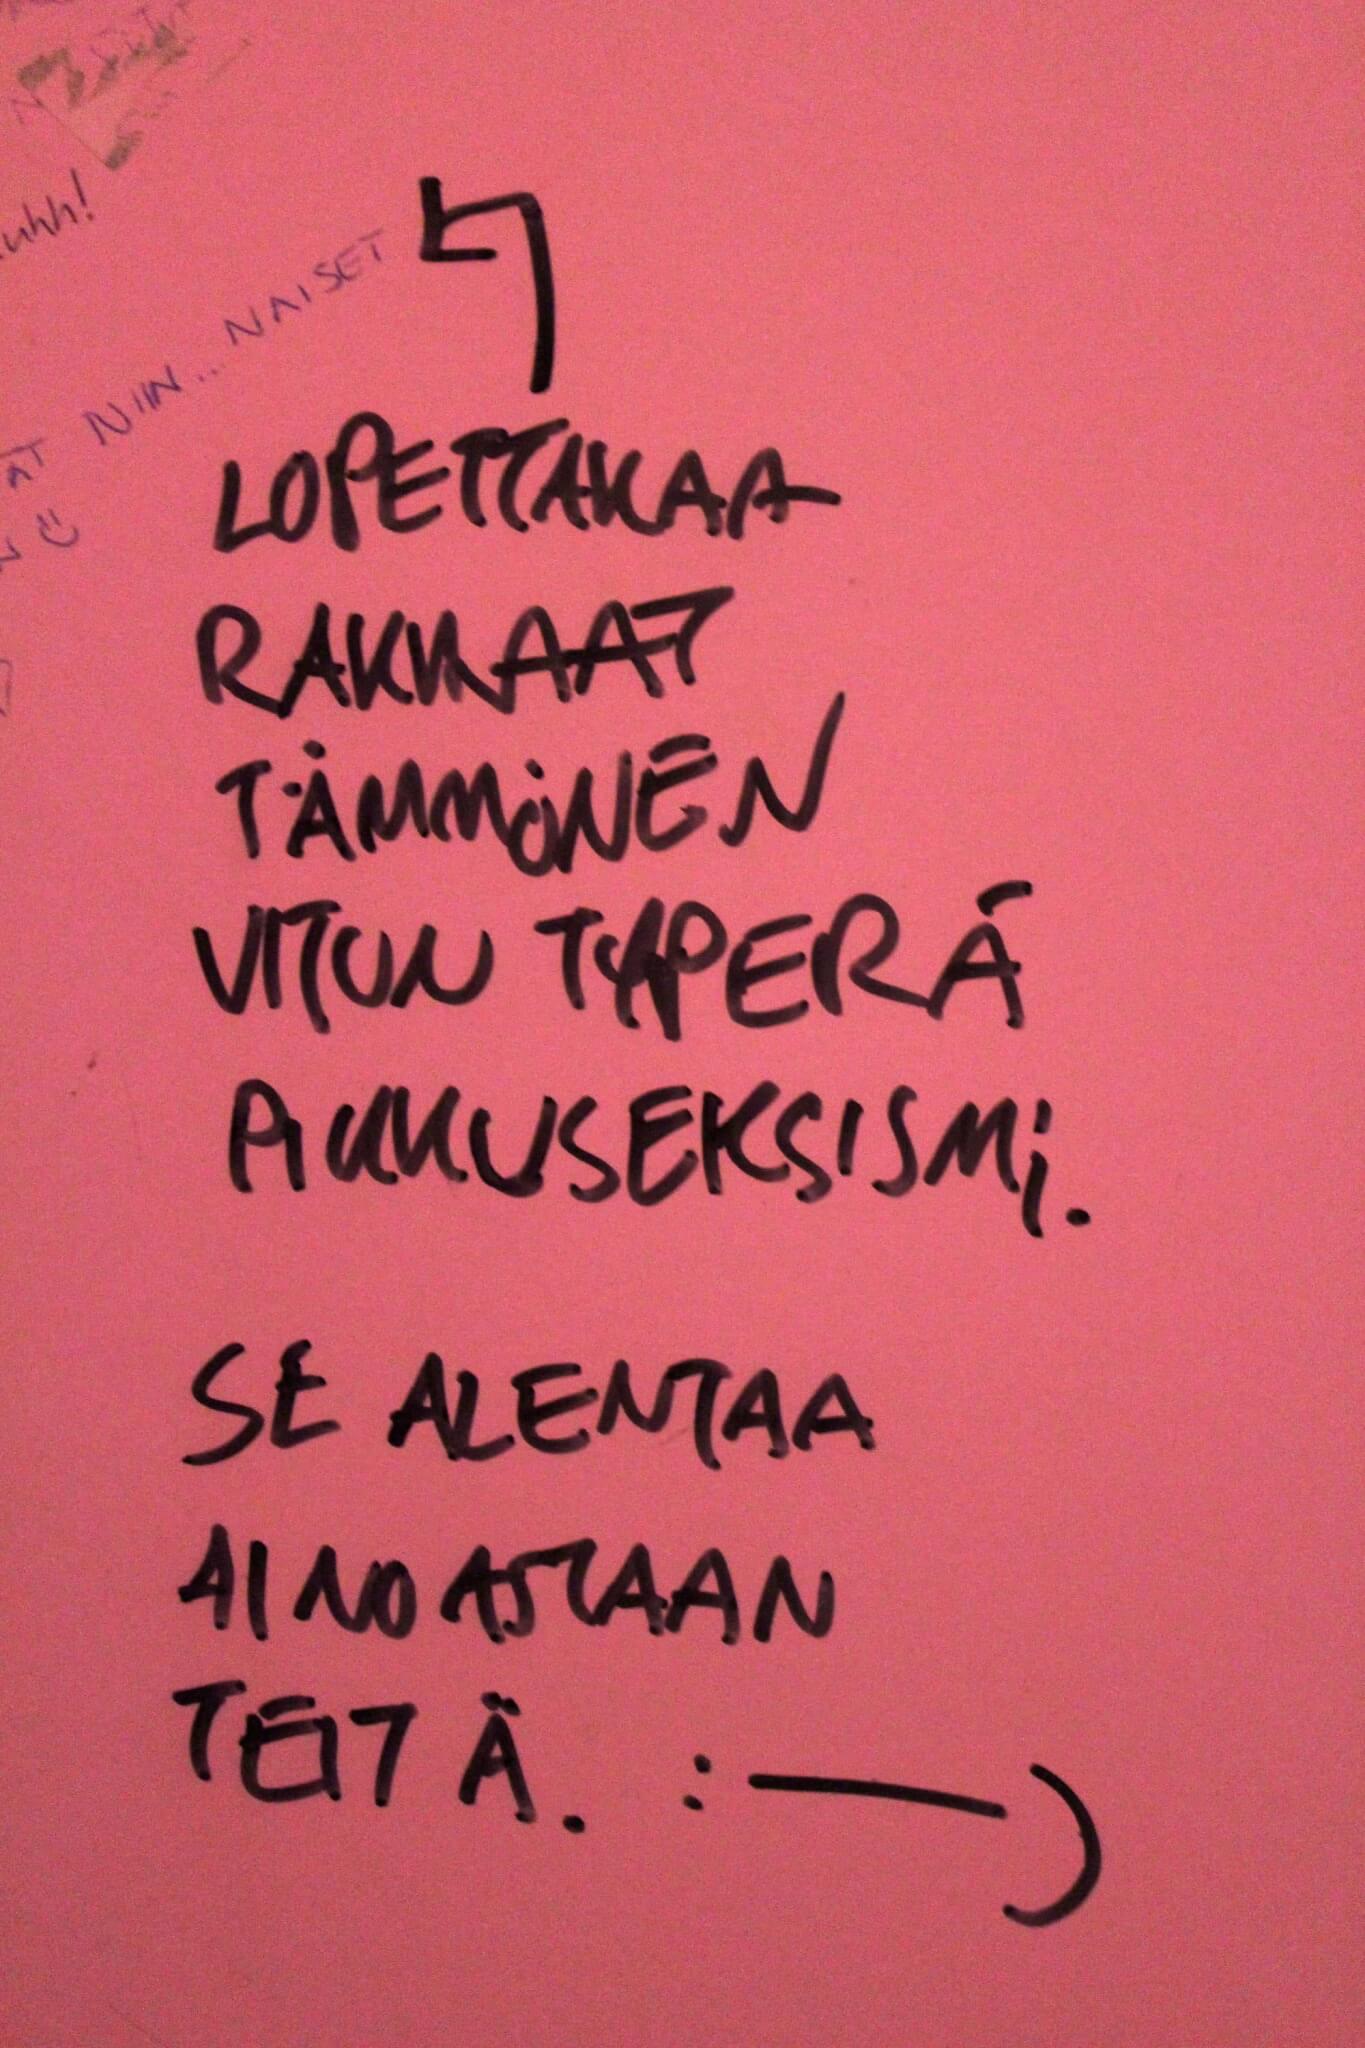 uhh!
NIIN... NAISET
LOPETTAKAA
RAKKAAT
TÄMMÖNEN
VITUN TYPERÄ
PIKKUSEKSISMI.
SE ALENTAA
AINOASTAAN
TEITÄ. :—)